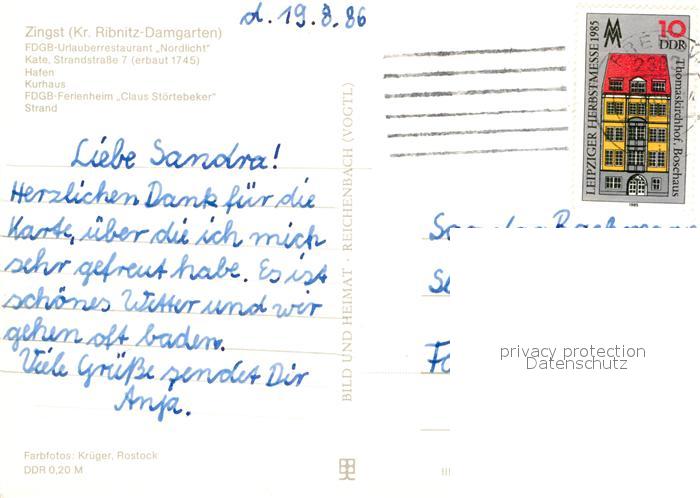 d. 19.8.86
Zingst (Kr. Ribnitz-Damgarten)
FDGB-Urlauberrestaurant „Nordlicht"
Kate, Strandstraße 7 (erbaut 1745)
Hafen
Kurhaus
FDGB-Ferienheim „Claus Störtebeker"
Strand
Liebe Sandra!
Herzlichen Dank für die
Karte, über die ich mich
sehr gefreut habe. Es ist
schönes Wetter und wir
gehen oft baden.
Viele Grüße sendet Dir
Anja.
Farbfotos: Krüger, Rostock
DDR 0,20 M
BILD UND HEIMAT · REICHENBACH (VOGTL)
LEIPZIGER HERBSTMESSE 1985
10
DDR
Thomaskirchhof, Boschaus
1985
privacy protection
Datenschutz